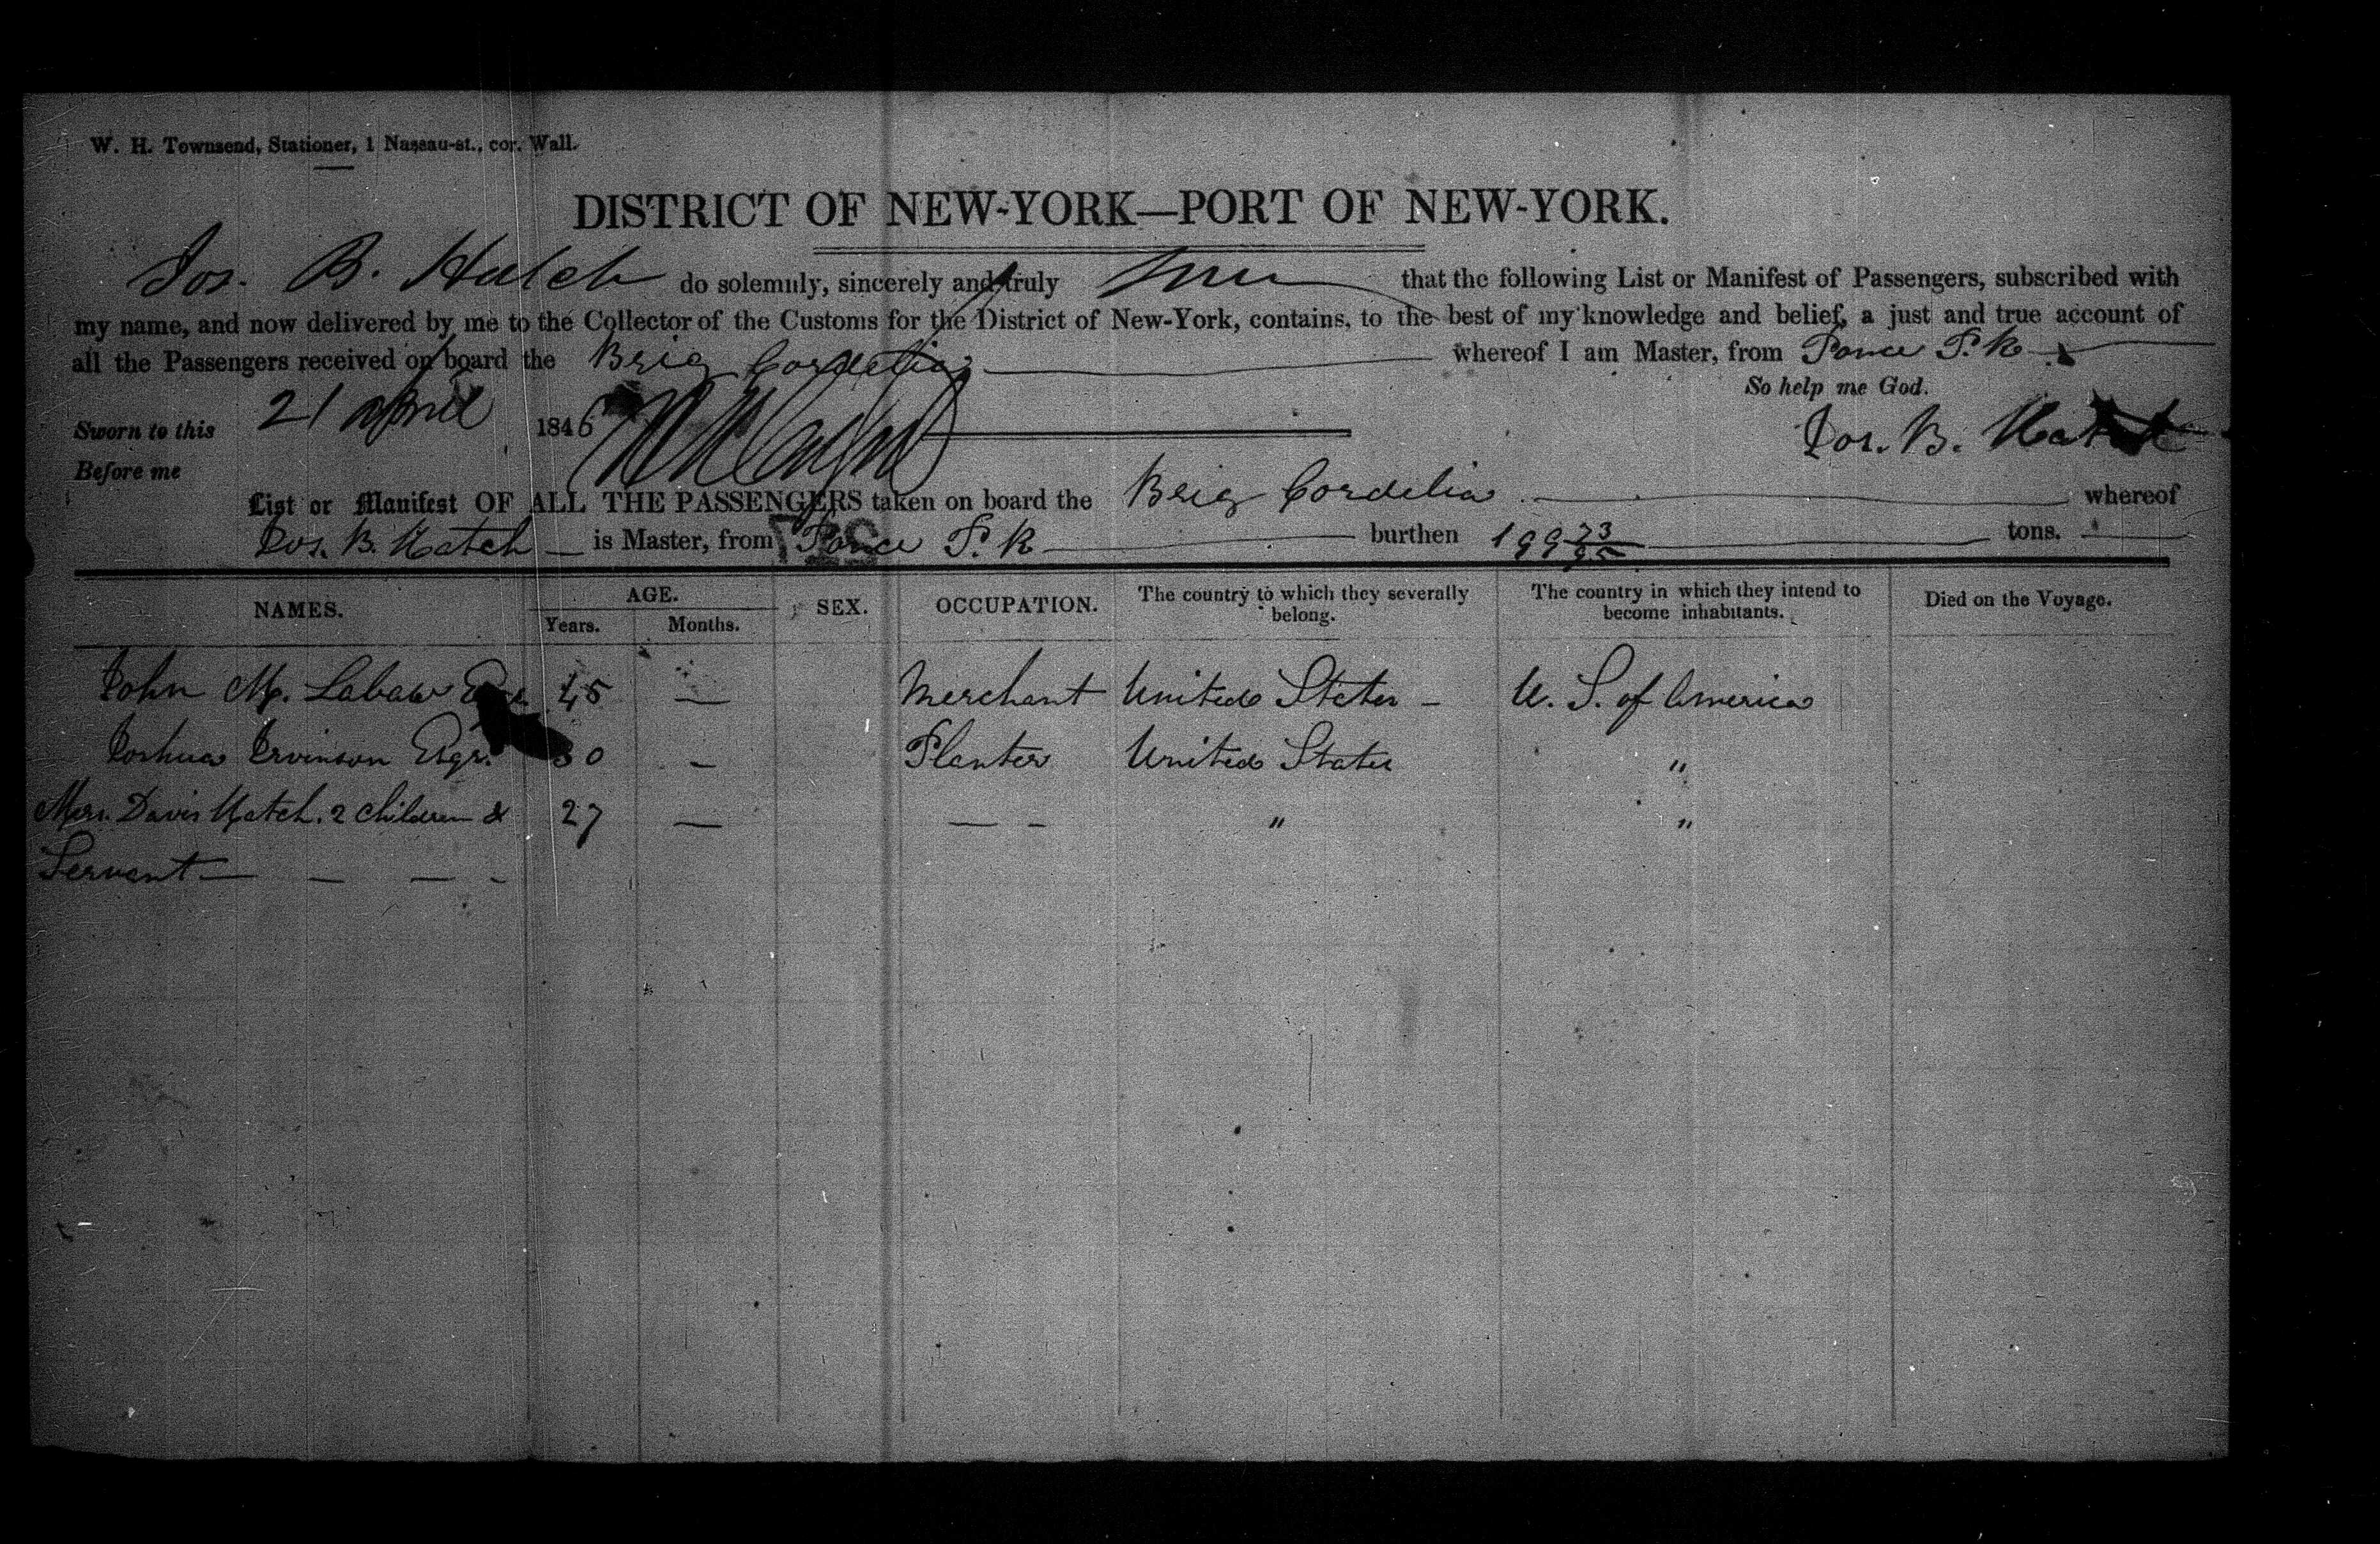 W. H. Townsend, Stationer, 1 Nassau-st., cor. Wall.
DISTRICT OF NEW-YORK—PORT OF NEW-YORK.
Jos. B. Hatch do solemnly, sincerely and truly that the following List or Manifest of Passengers, subscribed with
my name, and now delivered by me to the Collector of the Customs for the District of New-York, contains, to the best of my knowledge and belief, a just and true account of
all the Passengers received on board the Brig Cordelia whereof I am Master, from Ponce P. R.
So help me God.
Sworn to this 21 April 1846 Jos. B. Hatch
Before me
List or Manifest OF ALL THE PASSENGERS taken on board the Brig Cordelia whereof
Jos. B. Hatch is Master, from Ponce P. R burthen 199 73/95 tons.
NAMES. AGE. SEX. OCCUPATION. The country to which they severally belong. The country in which they intend to become inhabitants. Died on the Voyage.
Years. Months.
John M. Labaw 45 — Merchant United States - U. S. of America
Joshua Ervinson Esqr. 30 — Planter United States "
Mrs. Davis Hatch. 2 children & 27 — — - " "
Servant — — — -